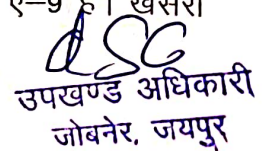 ए–9 है। खसरा
उपखण्ड अधिकारी
जोबनेर, जयपुर